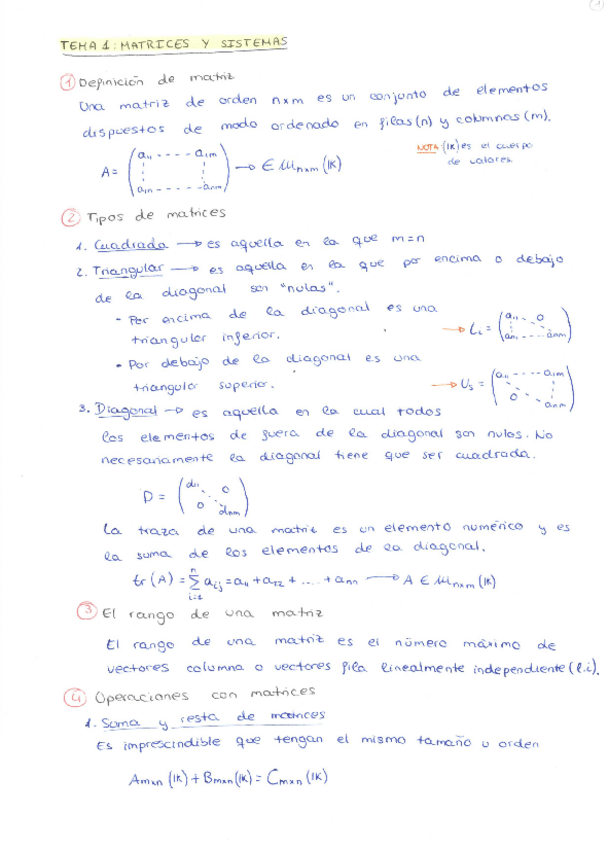 1
TEMA 1: MATRICES Y SISTEMAS
1 Definición de matriz
Una matriz de orden nxm es un conjunto de elementos
dispuestos de modo ordenado en filas (n) y columnas (m).
A = (a11 - - - - a1m
a1n - - - - - anm) → ∈ Mnxm (IK)
NOTA: (IK) es el cuerpo
de valores.
2 Tipos de matrices
1. Cuadrada → es aquella en la que m=n
2. Triangular → es aquella en la que por encima o debajo
de la diagonal son "nulas".
- Por encima de la diagonal es una
triangular inferior.
→ Li = (a11 0
an1 - - - - anm)
• Por debajo de la diagonal es una
triangular superior.
→ Us = (a11 - - - a1m
0 anm)
3. Diagonal → es aquella en la cual todos
los elementos de fuera de la diagonal son nulos. No
necesariamente la diagonal tiene que ser cuadrada.
D = (d11 0
0 dnm)
La traza de una matriz es un elemento numérico y es
la suma de los elementos de la diagonal.
tr (A) = Σ aij = a11 + a22 + .... + ann → A ∈ Mnxm (IK)
3 El rango de una matriz
El rango de una matriz es el número máximo de
vectores columna o vectores fila linealmente independiente (l.i).
4 Operaciones con matrices
1. Suma y resta de matrices
Es imprescindible que tengan el mismo tamaño u orden
Amxn (IK) + Bmxn (IK) = Cmxn (IK)